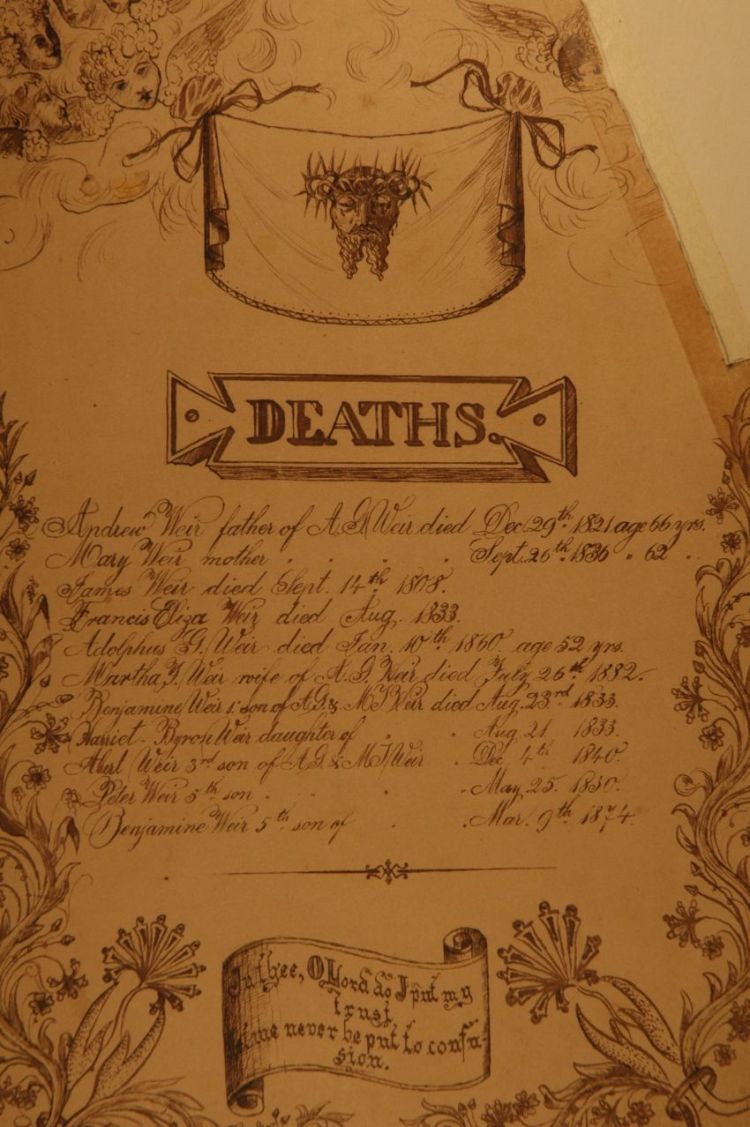 DEATHS.
Andrew Weir father of A. G. Weir died Dec. 29th. 1821 age 66 yrs.
Mary Weir mother . . . . Sept. 26th 1836 " 62 ..
James Weir died Sept. 14th 1808.
Francis Eliza Weir died Aug. 1833.
Adolphus G. Weir died Jan. 10th 1860. age 52 yrs.
Martha J. Weir wife of A. G. Weir died July 26th 1882.
Benjamine Weir 1st son of A G & M J Weir died Aug. 23rd 1833.
Harriet Byron Weir daughter of . . Aug. 21 1833.
Weir 3rd son of A G & M J Weir . Dec 4th 1840.
Peter Weir 5th son . . . . May 25. 1850.
Benjamine Weir 5th son of . . Mar. 9th 1874.
In thee, O Lord do I put my
trust
me never be put to confu-
sion.